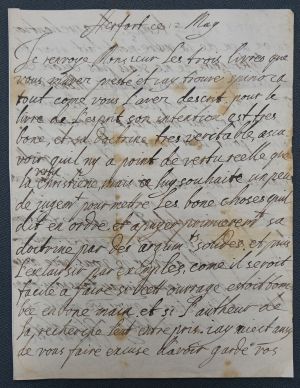 Herfort ce 12 May
Je renvoye Monsieur les trois livres que
vous m'avez presté et iay trouvé
tout come vous l'avez descrit. pour le
livre de L'esprit son intention est tres
bone, et sa doctrine tres veritable, a sa
voir quil ny a point de vertu réelle que
la chrestiene, mais ie luy souhaite un peu
de jugemt. pour mettre les bone choses quil
dit en ordre et apuyer premierent. sa
doctrine par des argumts. solides, et puis
l'exclaisir par exemples, come il seroit
facile a faire si cet ouvrage estoit tom
bée en bone main, et si l'autheur de
la recherche l'eut entrepris. iay
de vous faire excuse d'avoir gardé vos